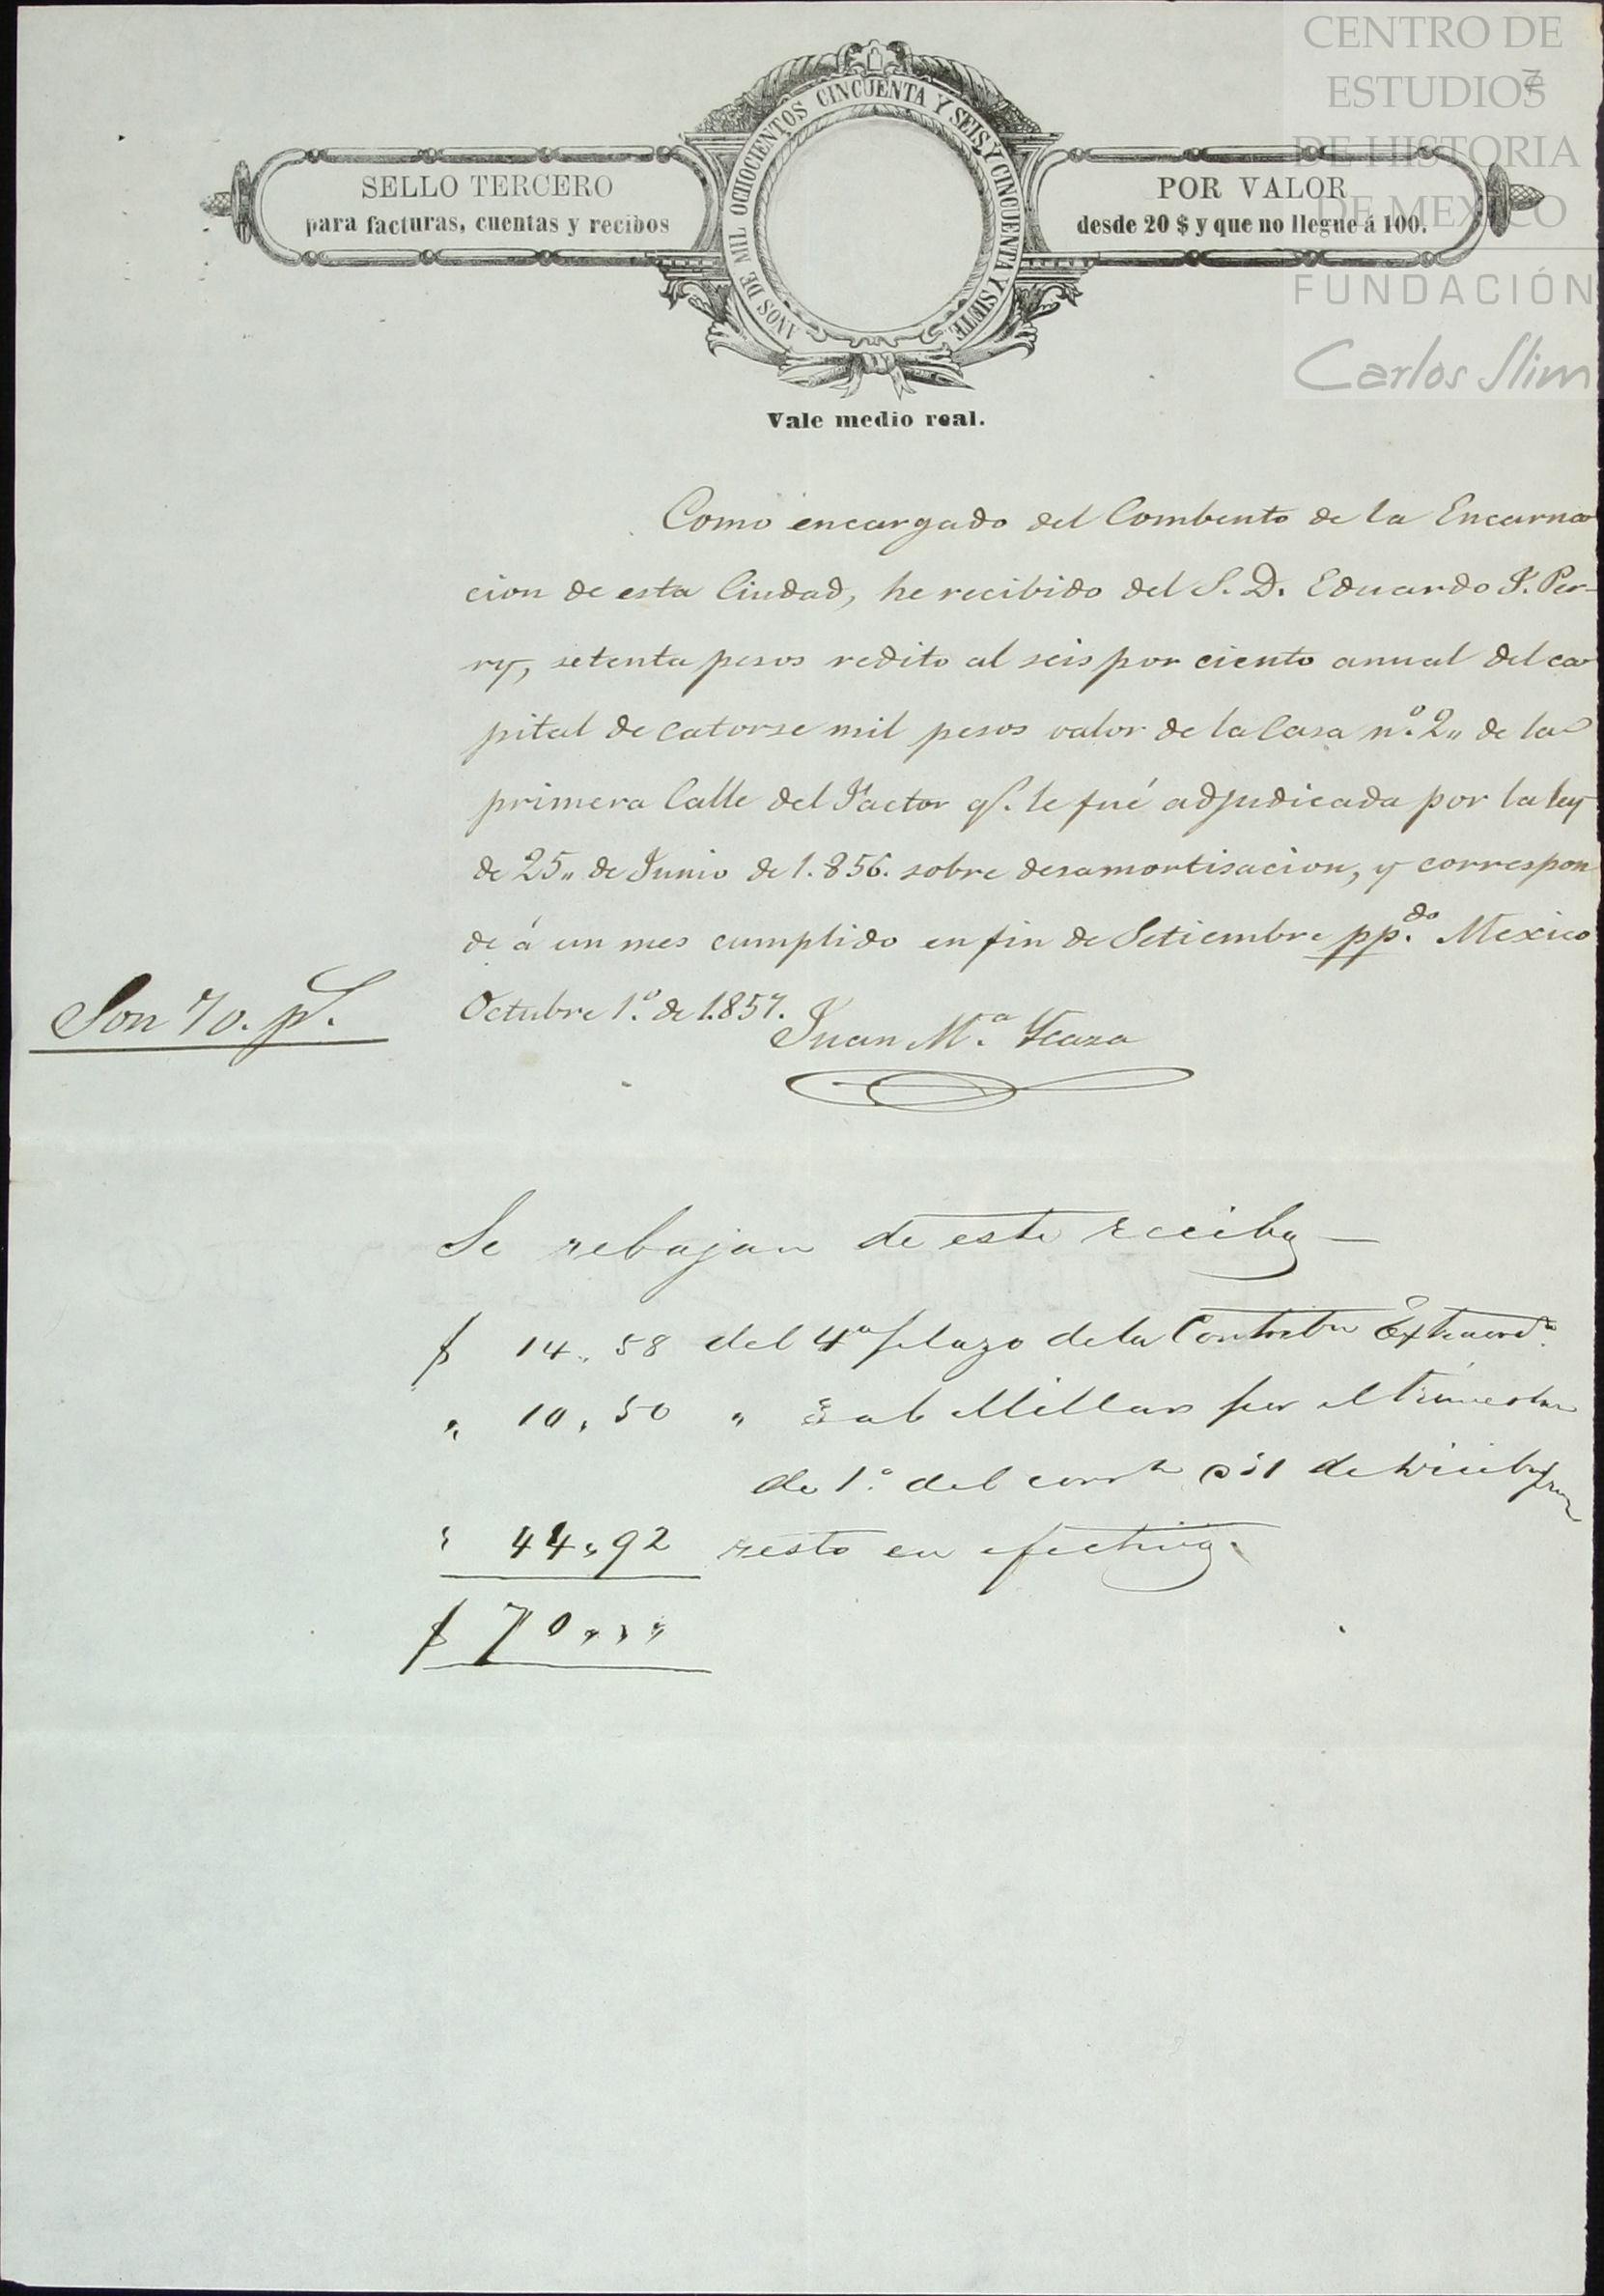 CENTRO DE
ESTUDIOS
DE HISTORIA
DE MEXICO
FUNDACIÓN
Carlos Slim
7
SELLO TERCERO
para facturas, cuentas y recibos
AÑOS DE MIL OCHOCIENTOS CINCUENTA Y SEIS Y CINCUENTA Y SIETE
POR VALOR
desde 20 $ y que no llegue á 100.
Vale medio real.
Como encargado del Combento de la Encarna
cion de esta Ciudad, he recibido del S. D. Eduardo J. Per-
ry, setenta pesos redito al seis por ciento anual del ca
pital de catorse mil pesos valor de la Casa n.º 2,, de la
primera Calle del Factor q.e le fué adjudicada por la ley
de 25,, de Junio de 1.856. sobre desamortisacion, y correspon
de á un mes cumplido en fin de Setiembre pp.do Mexico
Octubre 1.º de 1.857.
Son 70. p.s
Juan M.a Ycaza
Se rebajan de este recibo —
$ 14,, 58 del 4º plazo de la Contribn Extraord.a
" 10, 50 " al Millar por el trimestre
de 1.º del corrte a 31 de
" 44,, 92 resto en efectivo.
$ 70 " " "